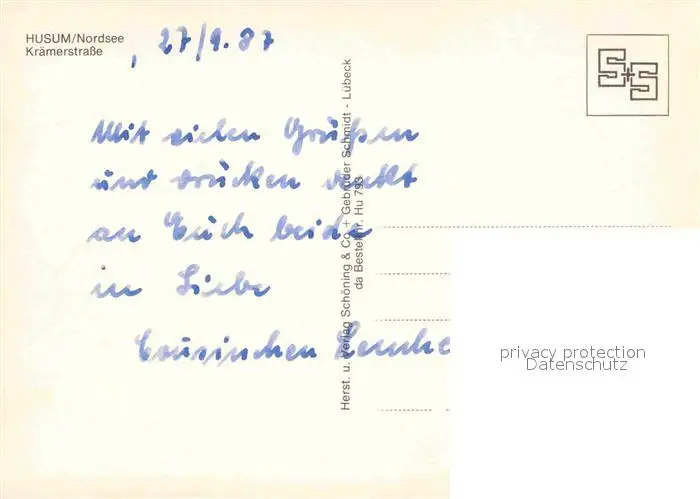 HUSUM/Nordsee
Krämerstraße
, 27/9.87
Mit vielen Grüßen
und drücken denkt
an Euch beide
in Liebe
Cousinchen
Herst. u. Verlag Schöning & Co + Gebrüder Schmidt - Lübeck
da Bestellnr. Hu 793
S+S
privacy protection
Datenschutz